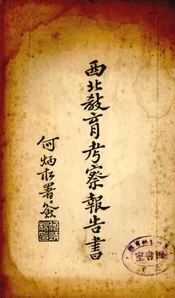 西北教育考察報告書
何炳松署簽